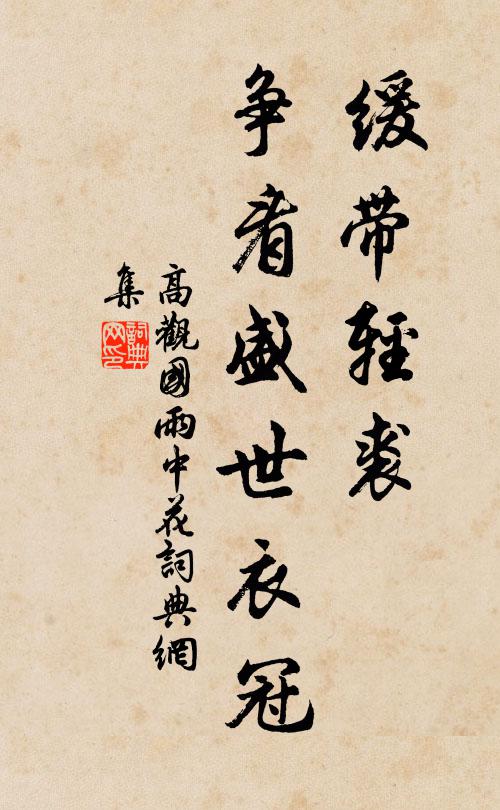 緩带輕裘
争看盛世衣冠
高觀國雨中花詞典網
集
詞典
网印